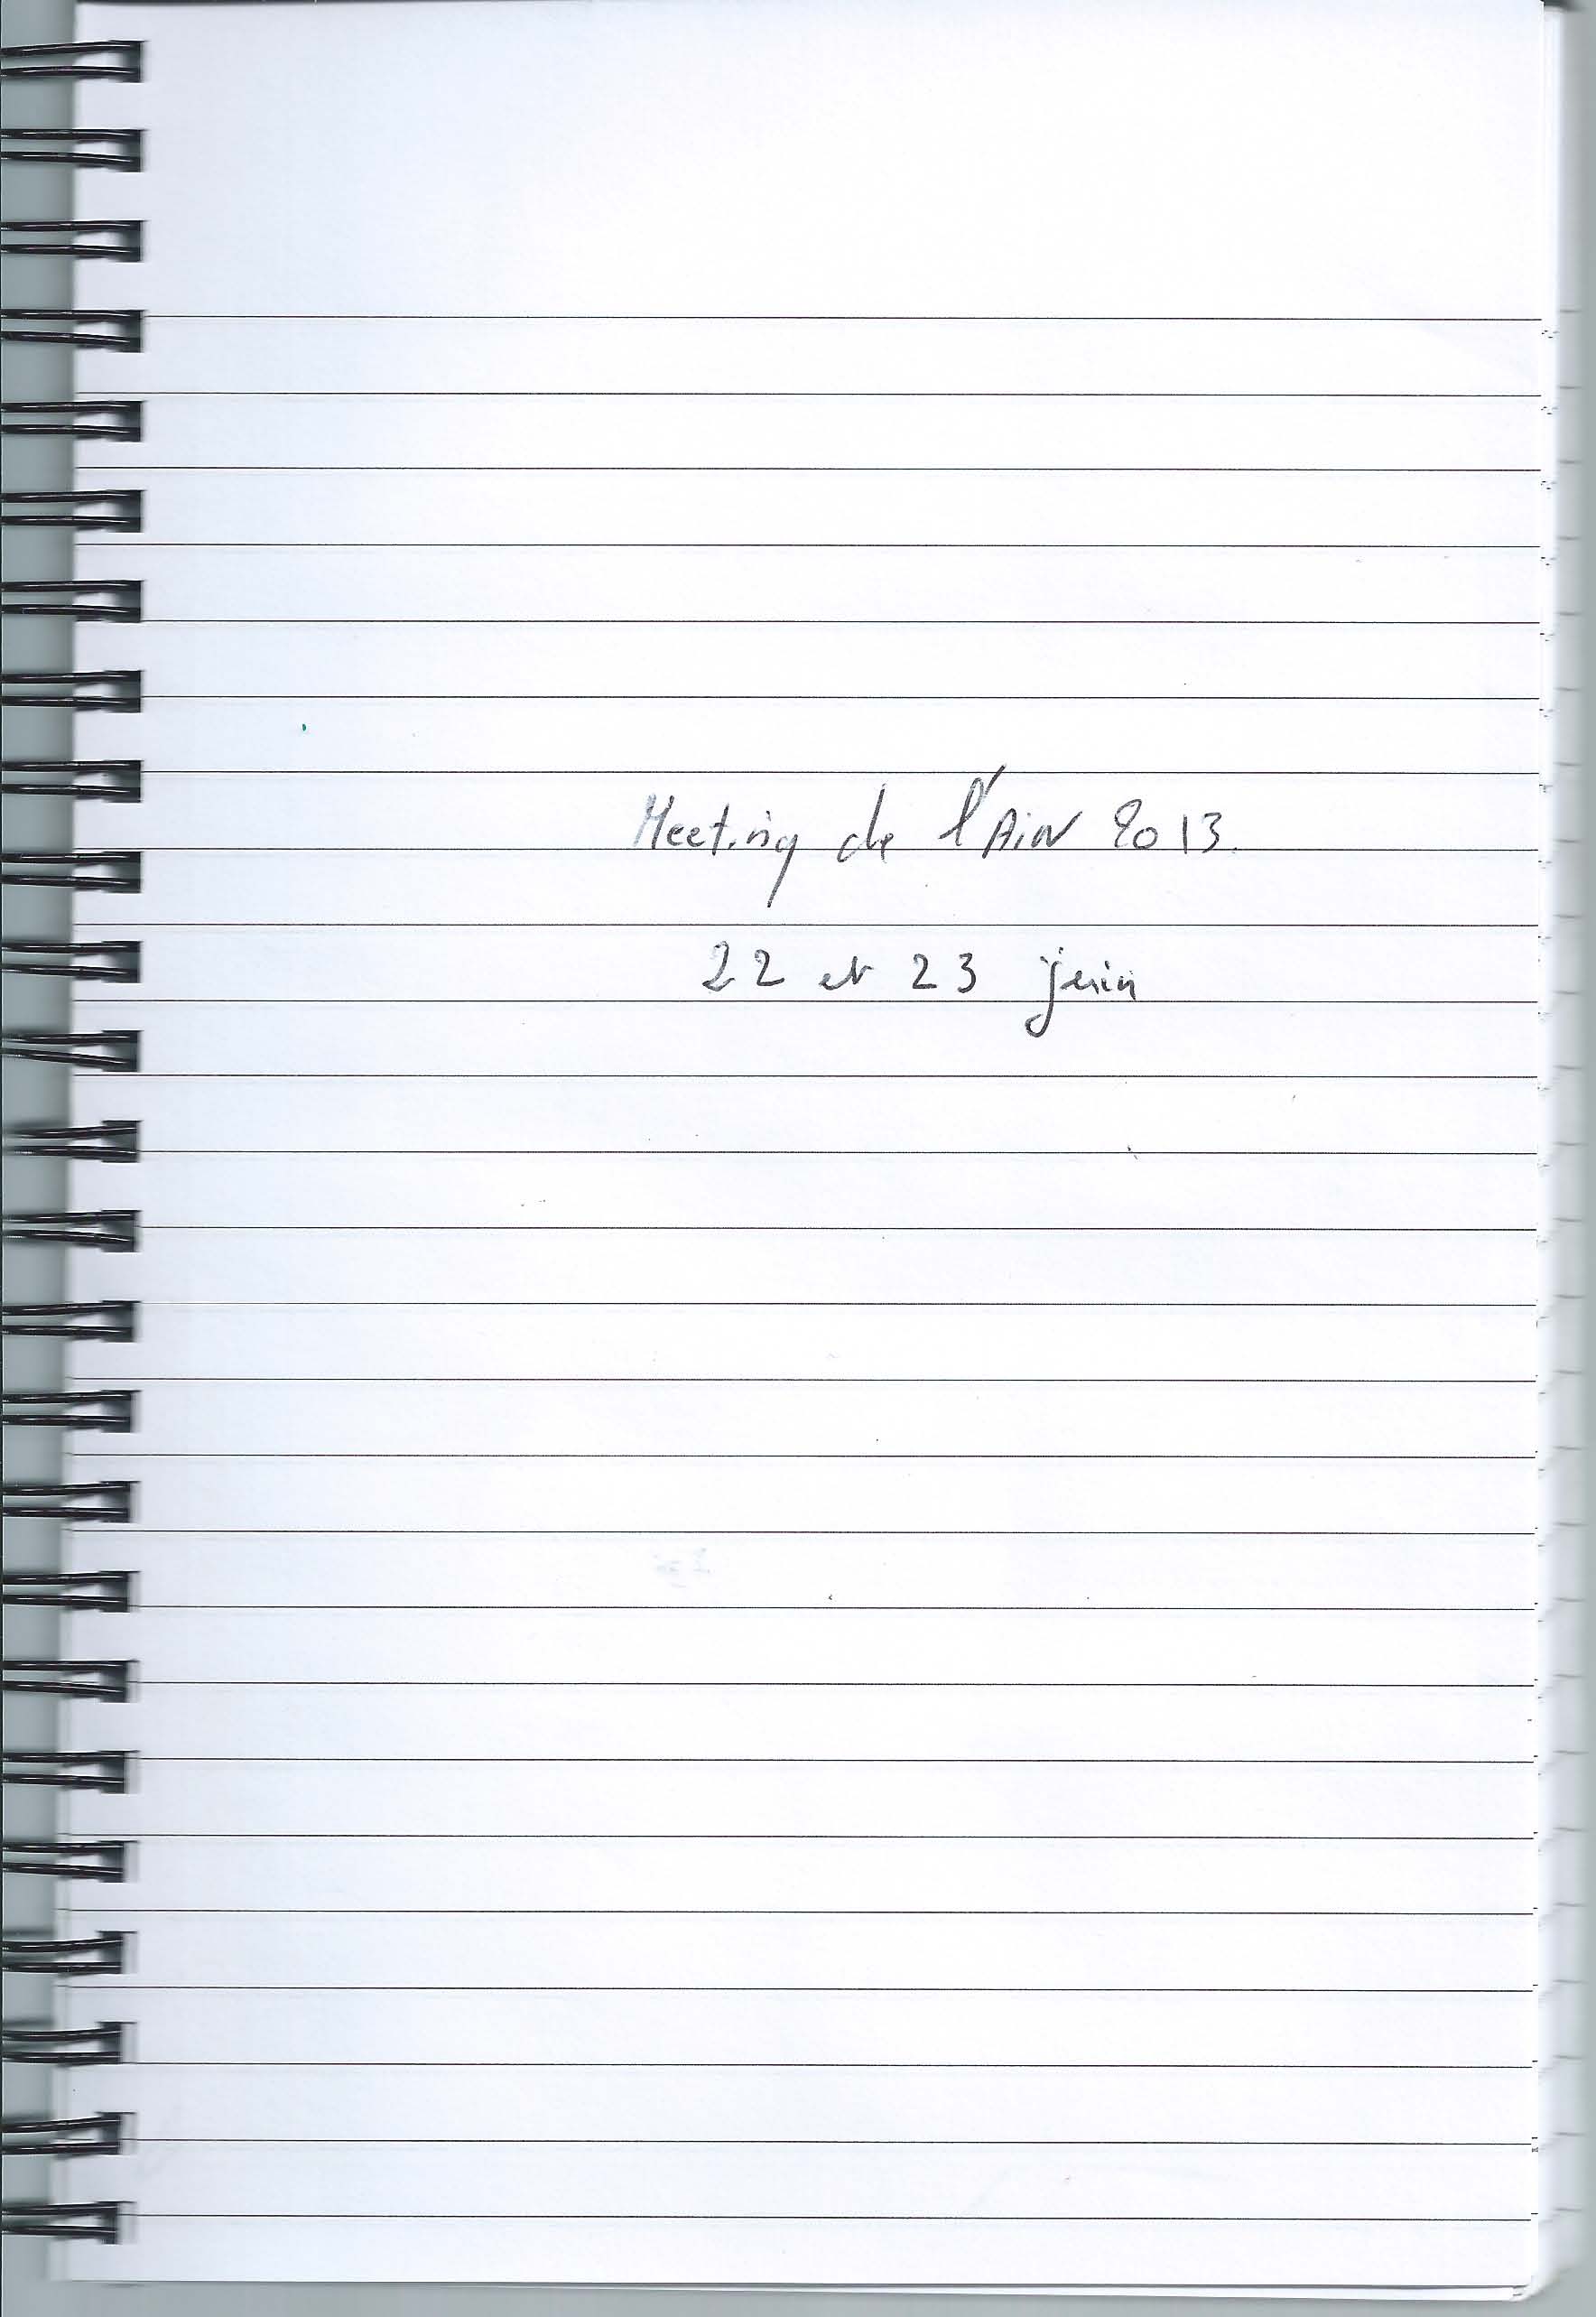 Meeting de l'AiN 2013.
22 et 23 juin